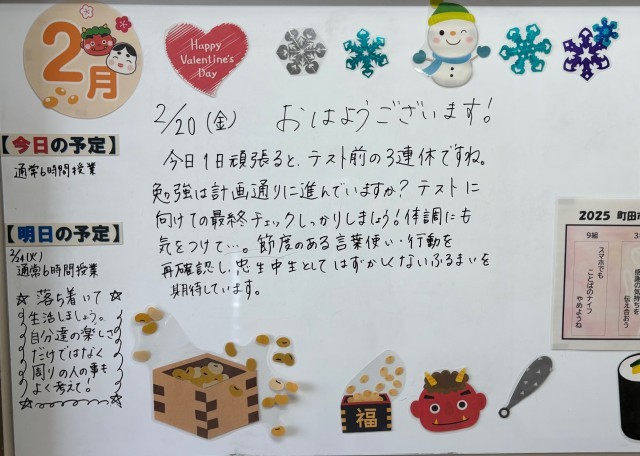 2月
Happy
Valentine's
Day
2/20(金) おはようございます!
今日1日頑張ると、テスト前の3連休ですね。
勉強は計画通りに進んでいますか?テストに
向けての最終チェックしっかりしましょう!体調にも
気をつけて…。節度のある言葉使い・行動を
再確認し、忠生中生としてはずかしくないふるまいを
期待しています。
【今日の予定】
通常6時間授業
【明日の予定】
2/24(火)
通常6時間授業
☆落ち着いて☆
生活しましょう。
自分達の楽しさ
だけではなく
周りの人の事も
よく考えて!
福
2025 町田市
9組
スマホでも
ことばのナイフ
やめようね
感謝の気持ちを
伝え合おう